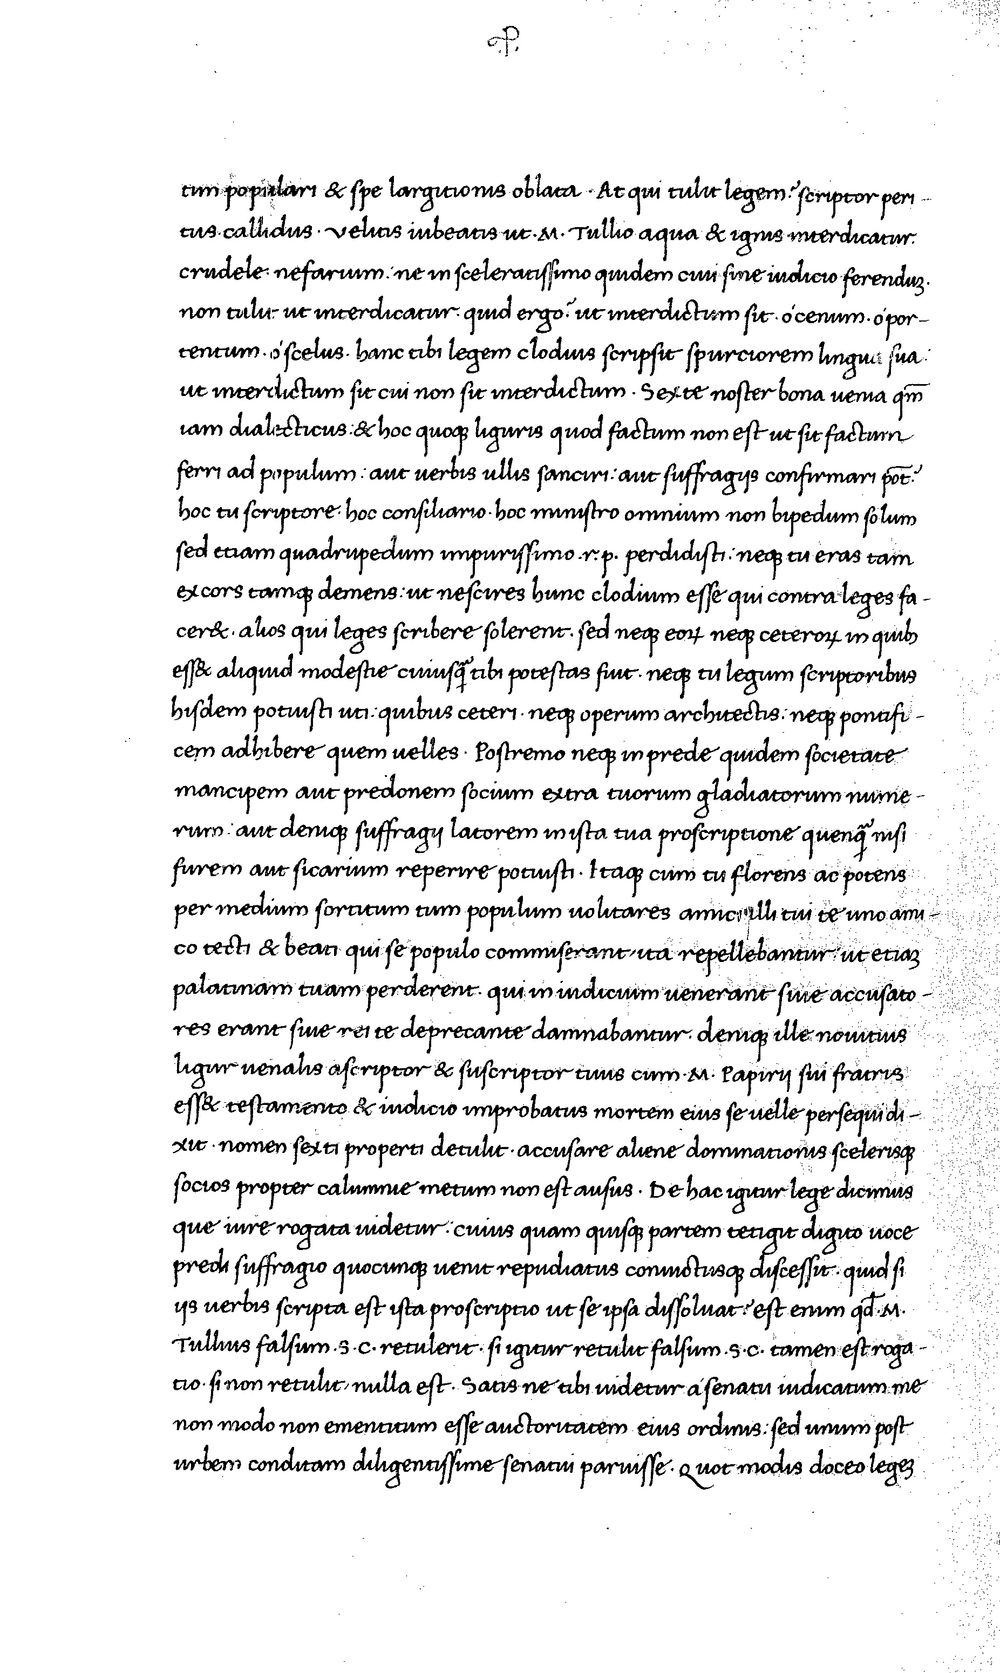 .P.
tim popplari & spe largitionis oblata · At qui tulit legem? scriptor peri-
tus callidus · velitis iubeatis ut · M · Tullio aqua & ignis interdicatur.
crudele: nefarium: ne in sceleratissimo quidem ciui sine iudicio ferenduꝫ.
non tulit ut interdicatur. quid ergo? ut interdictum sit · ó cenum · ó por-
tentum · ó scelus · hanc tibi legem clodius scripsit spurciorem lingua sua:
ut interdictum sit cui non sit interdictum · Sexte noster bona uenia qm̄
iam dialecticus: & hoc quoqꝫ liguris quod factum non est ut sit factum
ferri ad populum: aut uerbis ullis sanciri: aut suffragijs confirmari pōt?
hoc tu scriptore: hoc consiliario · hoc ministro omnium non bipedum solum
sed etiam quadrupedum impurissimo · r · p · perdidisti: neqꝫ tu eras tam
excors tamqꝫ demens: ut nescires hunc clodium esse qui contra leges fa-
cer& · alios qui leges scribere solerent · sed neqꝫ eoꝝ neqꝫ ceteroꝝ in quibꝫ
ess& aliquid modestie cuiusq̃ tibi potestas fuit · neqꝫ tu legum scriptoribus
hisdem potuisti uti: quibus ceteri · neqꝫ operum architectis: neqꝫ pontifi-
cem adhibere quem uelles · Postremo neqꝫ in prede quidem societate
mancipem aut predonem socium extra tuorum gladiatorum nume-
rum: aut deniqꝫ suffragij latorem in ista tua proscriptione quenq̃ nisi
furem aut sicarium reperire potuisti · Itaqꝫ cum tu florens ac potens
per medium sortitum tum populum uolitares amici illi tui te uno ami-
co tecti & beati qui se populo commiserant ita repellebantur: ut etiaꝫ
palatinam tuam perderent · qui in iudicium uenerant siue accusato-
res erant siue rei te deprecante damnabantur. deniqꝫ ille nouitius
ligur uenalis ascriptor & suscriptor tuus cum · M · Papirij sui fratris
ess& testamento & iudicio improbatus mortem eius se uelle persequi di-
xit · nomen sexti properti detulit · accusare aliene dominationis scelerisqꝫ
socios propter calumnie metum non est ausus · De hac igitur lege dicimus
que iure rogata uidetur: cuius quam quisqꝫ partem tetigit digito uoce
predi suffragio quocunqꝫ uenit repudiatus conuictusqꝫ discessit · quid si
ijs uerbis scripta est ista proscriptio ut se ipsa dissoluat? est enim qd̄ · M ·
Tullius falsum · S · C · retulerit · si igitur retulit falsum · S · C · tamen est roga-
tio · si non retulit, nulla est · Satis ne tibi uidetur a senatu iudicatum me
non modo non ementitum esse auctoritatem eius ordinis: sed unum post
urbem conditam diligentissime senatui paruisse · Quot modis doceo legeꝫ